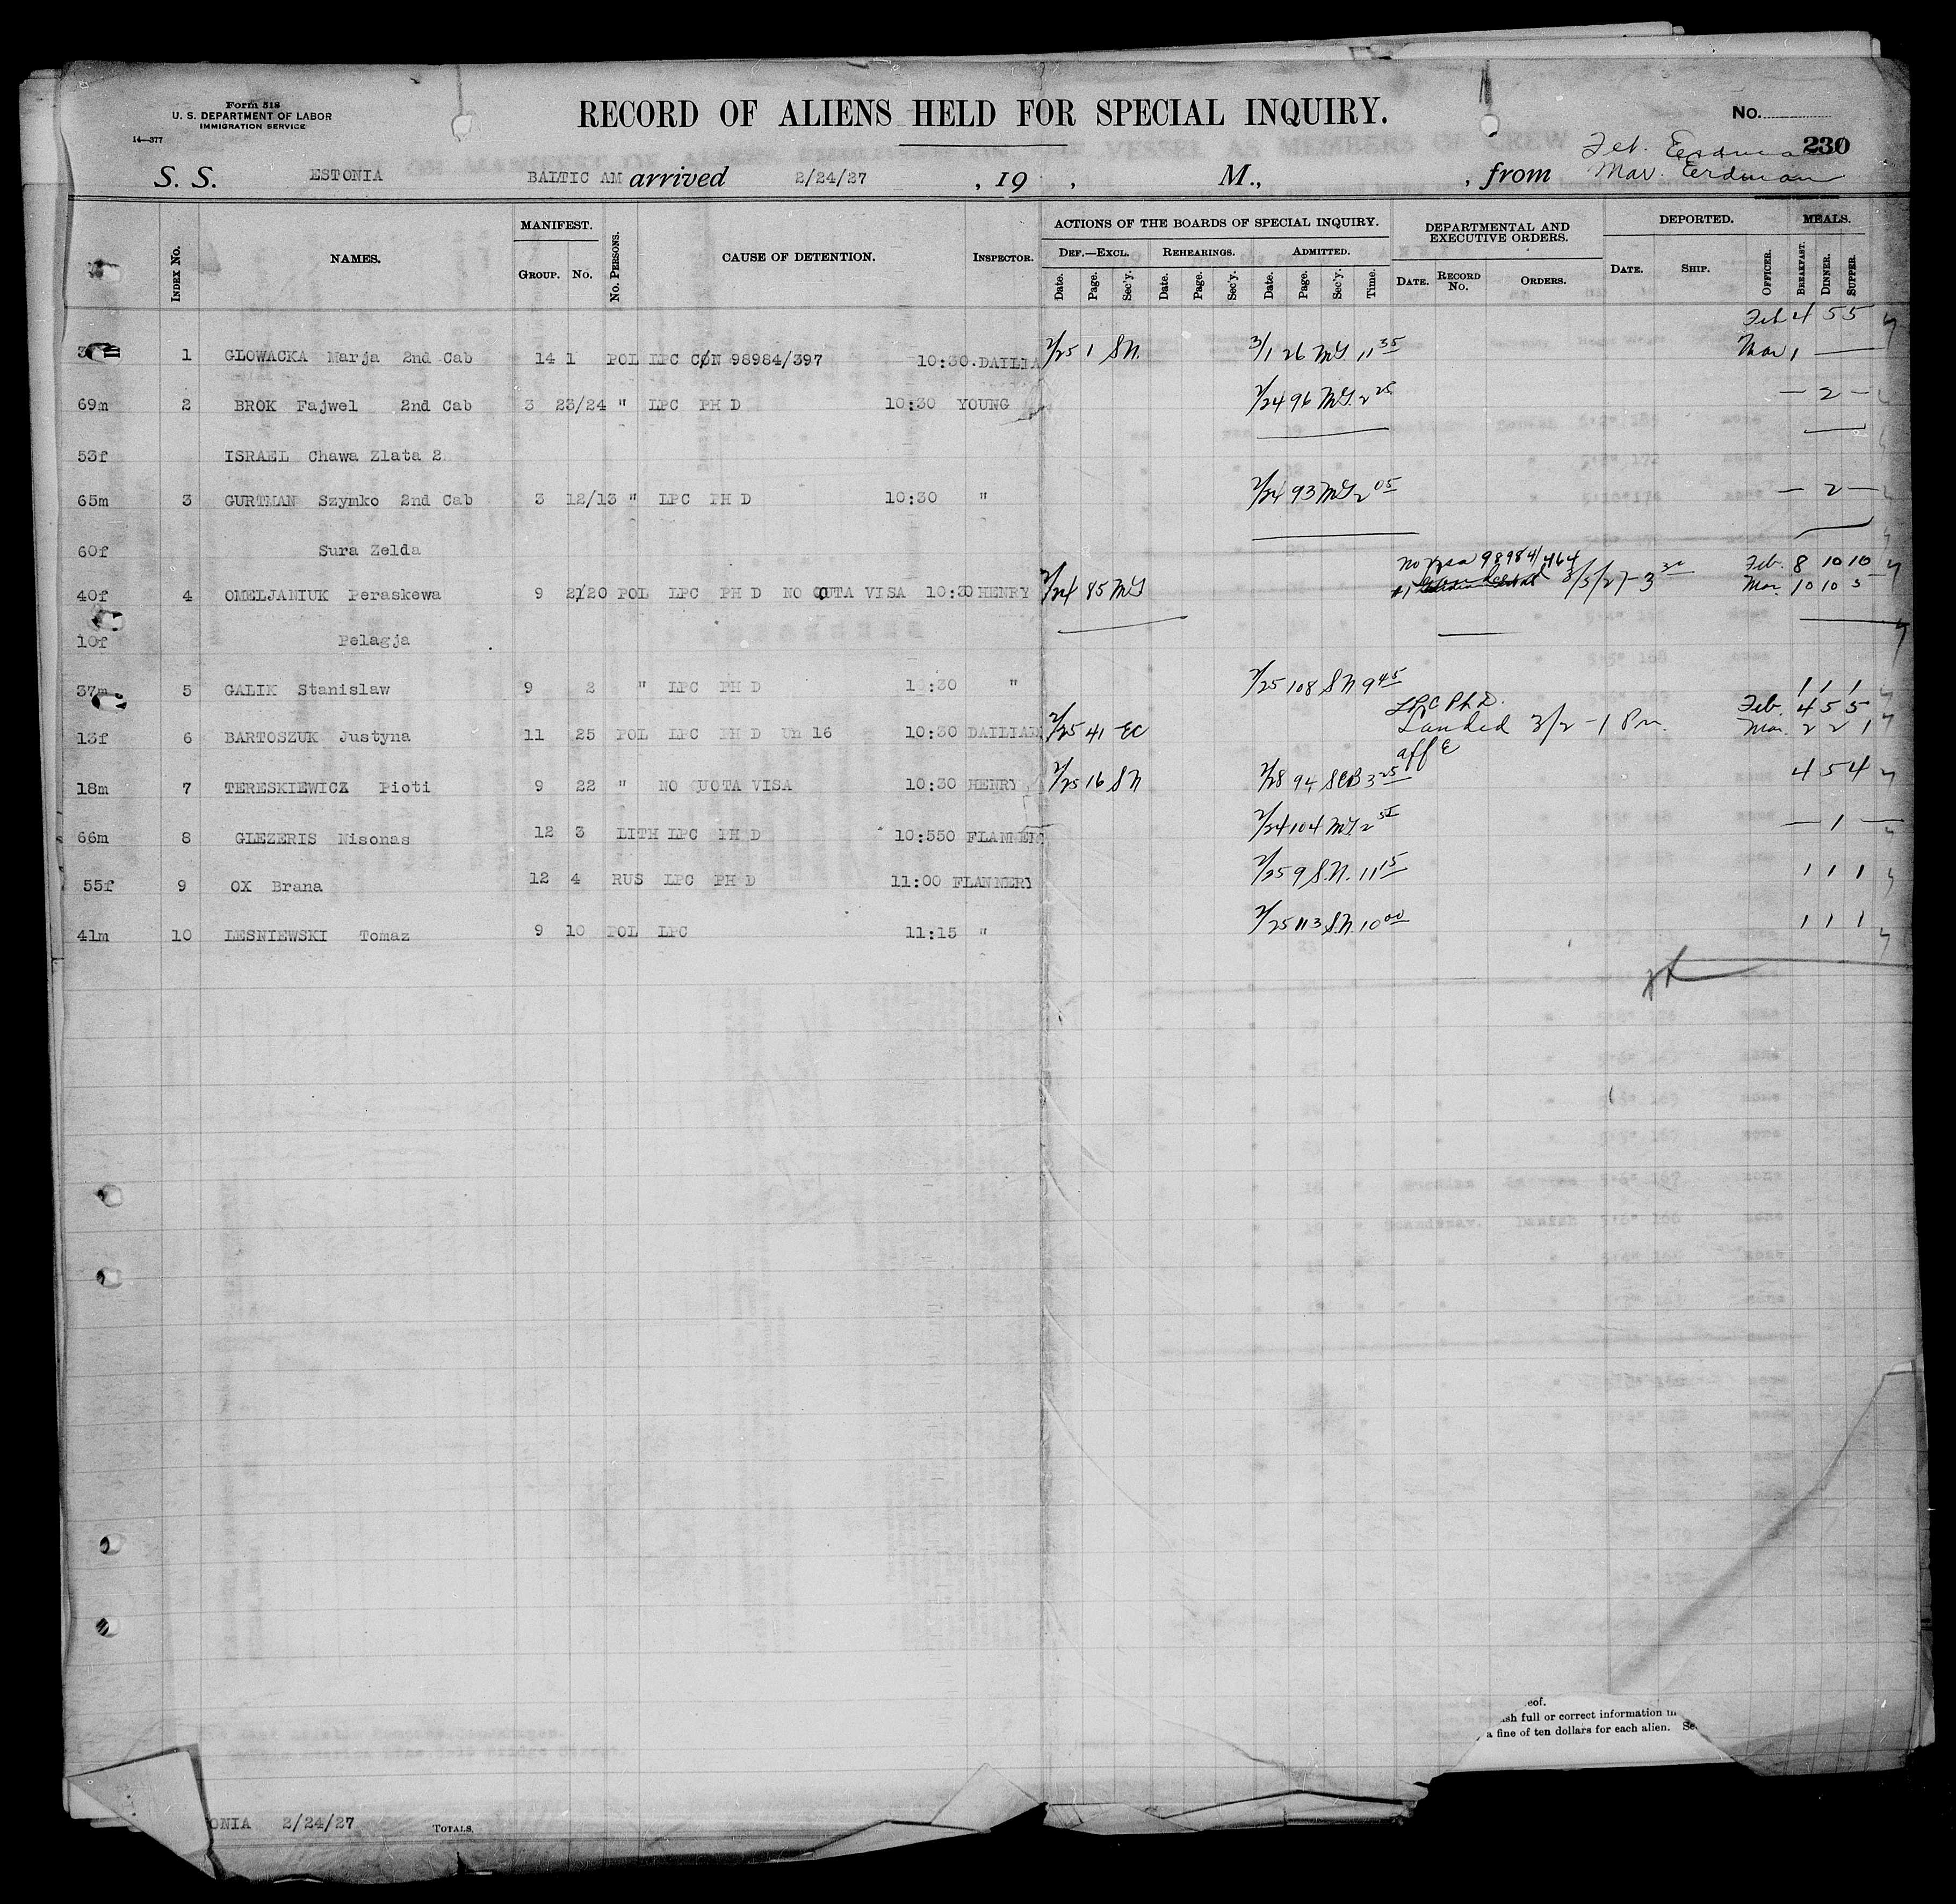 Form 518
U. S. DEPARTMENT OF LABOR
IMMIGRATION SERVICE
14—377
RECORD OF ALIENS HELD FOR SPECIAL INQUIRY.
No.
230
Feb. Erdman
Mar. Erdman
S. S. ESTONIA BALTIC AM arrived 2/24/27 , 19 , M., , from
INDEX NO. NAMES. MANIFEST. GROUP. NO. NO. PERSONS. CAUSE OF DETENTION. INSPECTOR. ACTIONS OF THE BOARDS OF SPECIAL INQUIRY. DEF.—EXCL. REHEARINGS. ADMITTED. Date. Page. Sec'y. Date. Page. Sec'y. Date. Page. Sec'y. Time. DEPARTMENTAL AND EXECUTIVE ORDERS. DATE. RECORD NO. ORDERS. DEPORTED. DATE. SHIP. OFFICER. MEALS. BREAKFAST. DINNER. SUPPER.
Feb 4 5 5
1 GLOWACKA Marja 2nd Cab 14 1 POL LPC CON 98984/397 10:30 DAILIA 2/25 1 SN. 3/1 26 MG 11 35 Mar 1 —
69m 2 BROK Fajwel 2nd Cab 3 23/24 " LPC PH D 10:30 YOUNG 2/24 96 MG 2 25 — 2 —
53f ISRAEL Chawa Zlata 2
65m 3 GURTMAN Szymko 2nd Cab 3 12/13 " LPC PH D 10:30 " 2/24 93 MG 2 05 — 2 —
60f Sura Zelda
98984/464 Feb. 8 10 10
40f 4 OMELJANIUK Peraskewa 9 21/20 POL LPC PH D NO QUTA VISA 10:30 HENRY 2/24 85 MG #1 3/5/27 - 3 30 Mar. 10 10 5
10f Pelagja
37m 5 GALIK Stanislaw 9 2 " LPC PH D 10:30 " 2/25 108 SN 9 45 1 1 1
LPC Ph D. Feb. 4 5 5
13f 6 BARTOSZUK Justyna 11 25 POL LPC PH D Un 16 10:30 DAILIAN 2/25 41 EC Landed 3/2 - 1 Pm. Mar. 2 2 1
aff E
18m 7 TERESKIEWICZ Pioti 9 22 " NO QUOTA VISA 10:30 HENRY 2/25 16 SN 2/28 94 SCB 3 25 4 5 4
66m 8 GLEZERIS Nisonas 12 3 LITH LPC PH D 10:550 FLANNER 2/24 104 MG 2 — 1 —
55f 9 OX Brana 12 4 RUS LPC PH D 11:00 FLANNERY 2/25 9 S.N. 11 15 1 1 1
41m 10 LESNIEWSKI Tomaz 9 10 POL LPC 11:15 " 2/25 113 S.N. 10 00 1 1 1
eof.
ish full or correct information in
a fine of ten dollars for each alien. Se
ONIA 2/24/27 TOTALS,